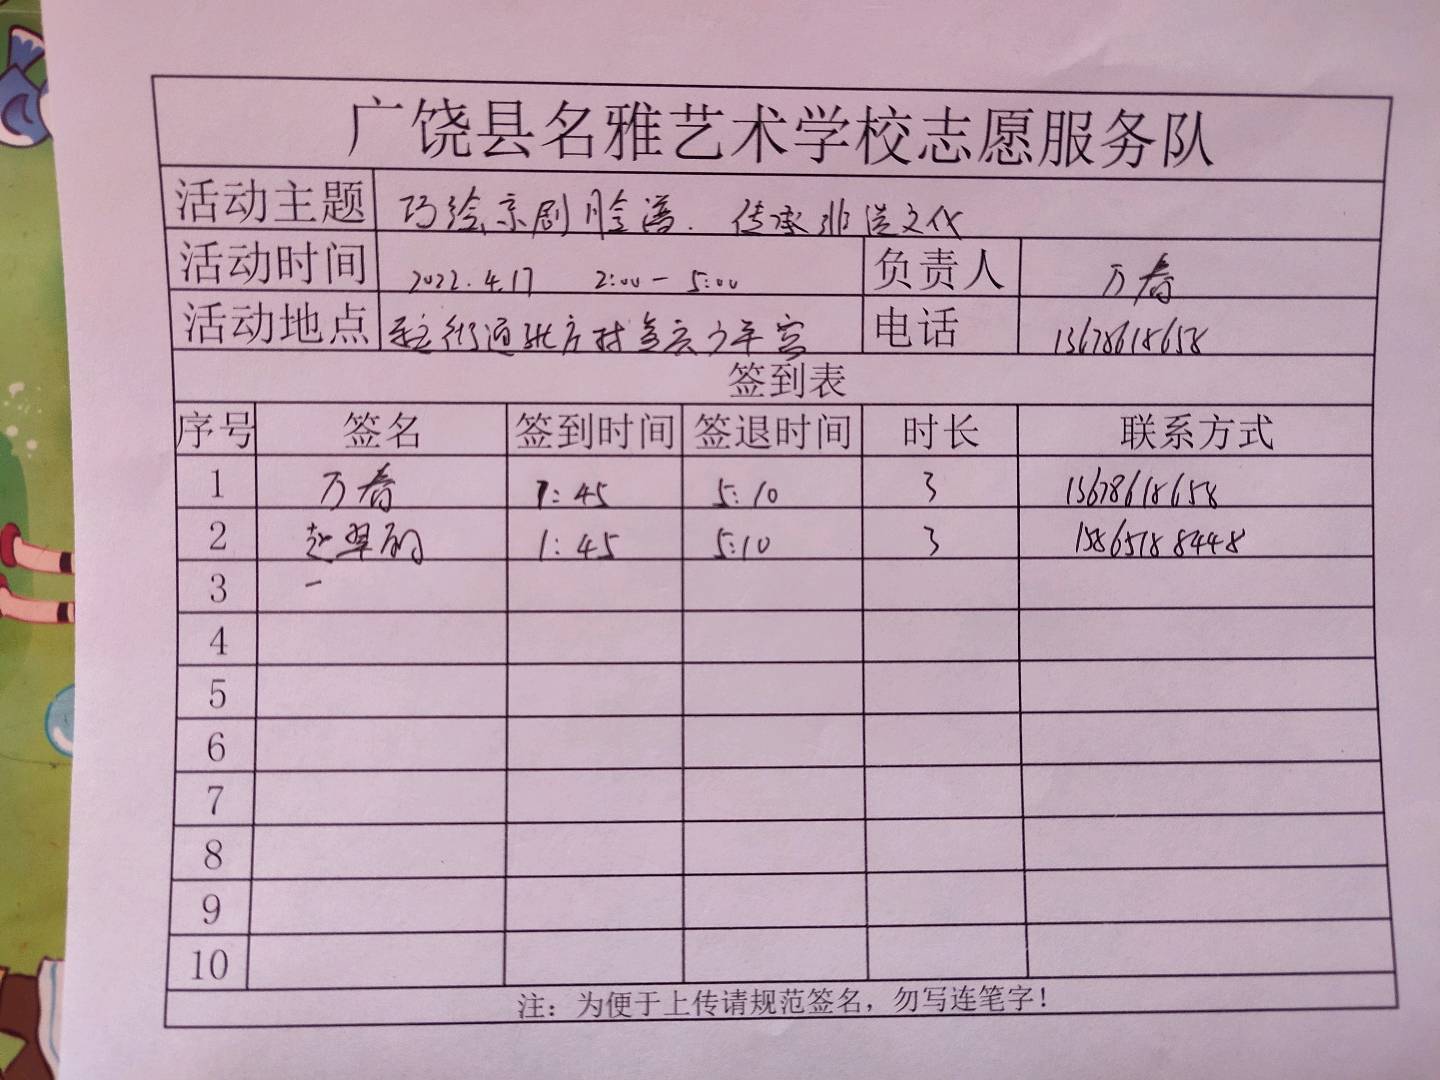 广饶县名雅艺术学校志愿服务队
活动主题 巧绘京剧脸谱.传承非遗文化
活动时间 2022.4.17 2:00-5:00 负责人 万春
活动地点 街道 村 少年宫 电话 13678618658
签到表
序号 签名 签到时间 签退时间 时长 联系方式
1 万春 1:45 5:10 3 13678618658
2 赵翠 1:45 5:10 3 15865188448
3
4
5
6
7
8
9
10
注：为便于上传请规范签名，勿写连笔字！